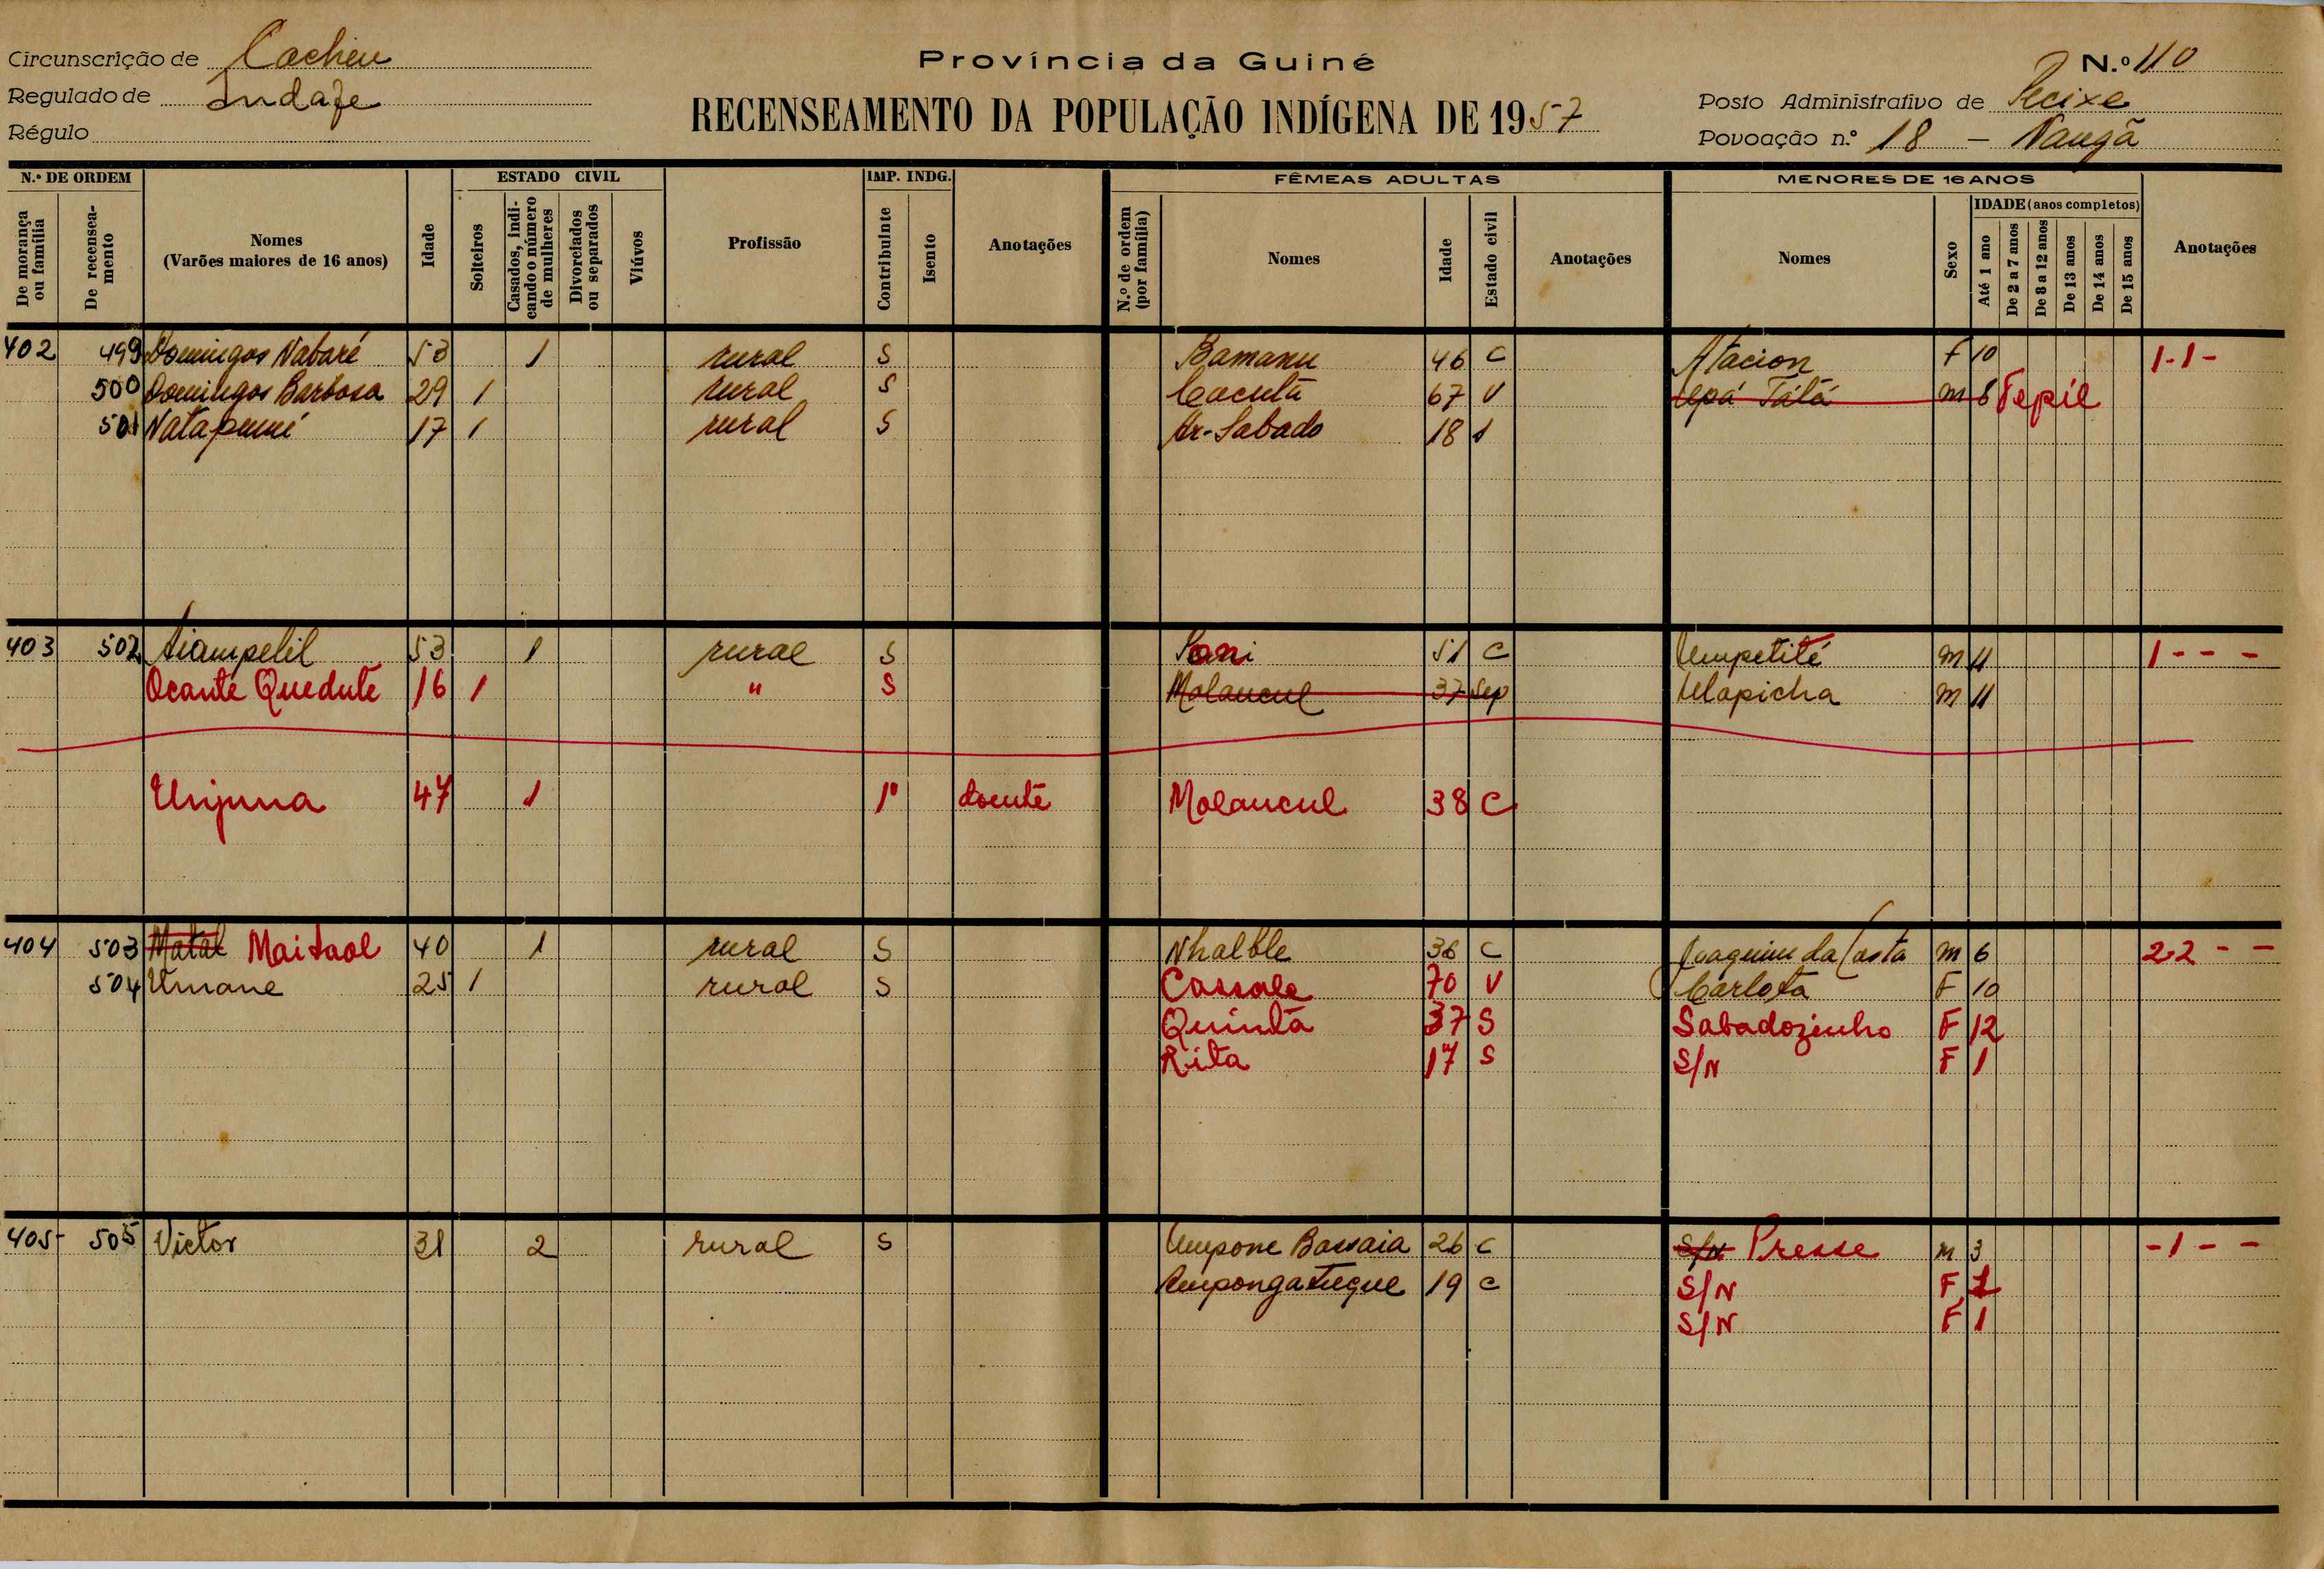 Circunscrição de Cacheu
Regulado de Indafe
Régulo
Província da Guiné
RECENSEAMENTO DA POPULAÇÃO INDÍGENA DE 1957
N.º 110
Posto Administrativo de Pecixe
Povoação n.º 18 - Nangã
N.º DE ORDEM
De morança ou família
De recenseamento
Nomes
(Varões maiores de 16 anos)
Idade
ESTADO CIVIL
Solteiros
Casados, indicando o número de mulheres
Divorciados ou separados
Viúvos
Profissão
IMP. INDG.
Contribuinte
Isento
Anotações
FÊMEAS ADULTAS
N.º de ordem (por família)
Nomes
Idade
Estado civil
Anotações
MENORES DE 16 ANOS
Nomes
Sexo
IDADE (anos completos)
Até 1 ano
De 2 a 7 anos
De 8 a 12 anos
De 13 anos
De 14 anos
De 15 anos
Anotações
402 499 Domingos Nabaré 53 1 rural S Bamanu 46 C Atacion F 10 1-1-
500 Domingos Barbosa 29 1 rural S Cacutã 67 V Upá Tátá m 8 Fepíl
501 Natapumi 17 1 rural S Ar-Sabado 18 s
403 502 Aiampelil 53 1 rural S Sani 51 C Umpetité m 11 1 - - -
Ocante Quedute 16 1 " S Molancul 37 Sep Ulapicha m 11
Unjuna 47 1 1º doente Molancul 38 C
404 503 Matal Maitaol 40 1 rural S Nhalble 36 C Joaquim da Costa m 6 2-2 - -
504 Umane 25 1 rural S Cassale 70 V Carlota F 10
Quintã 37 S Sabadozinho F 12
Rita 17 S S/N F 1
405 505 Victor 31 2 rural S Umpone Bassaia 26 C S/N Presse m 3 -1 - -
Umpongatuque 19 C S/N F 1
S/N F 1